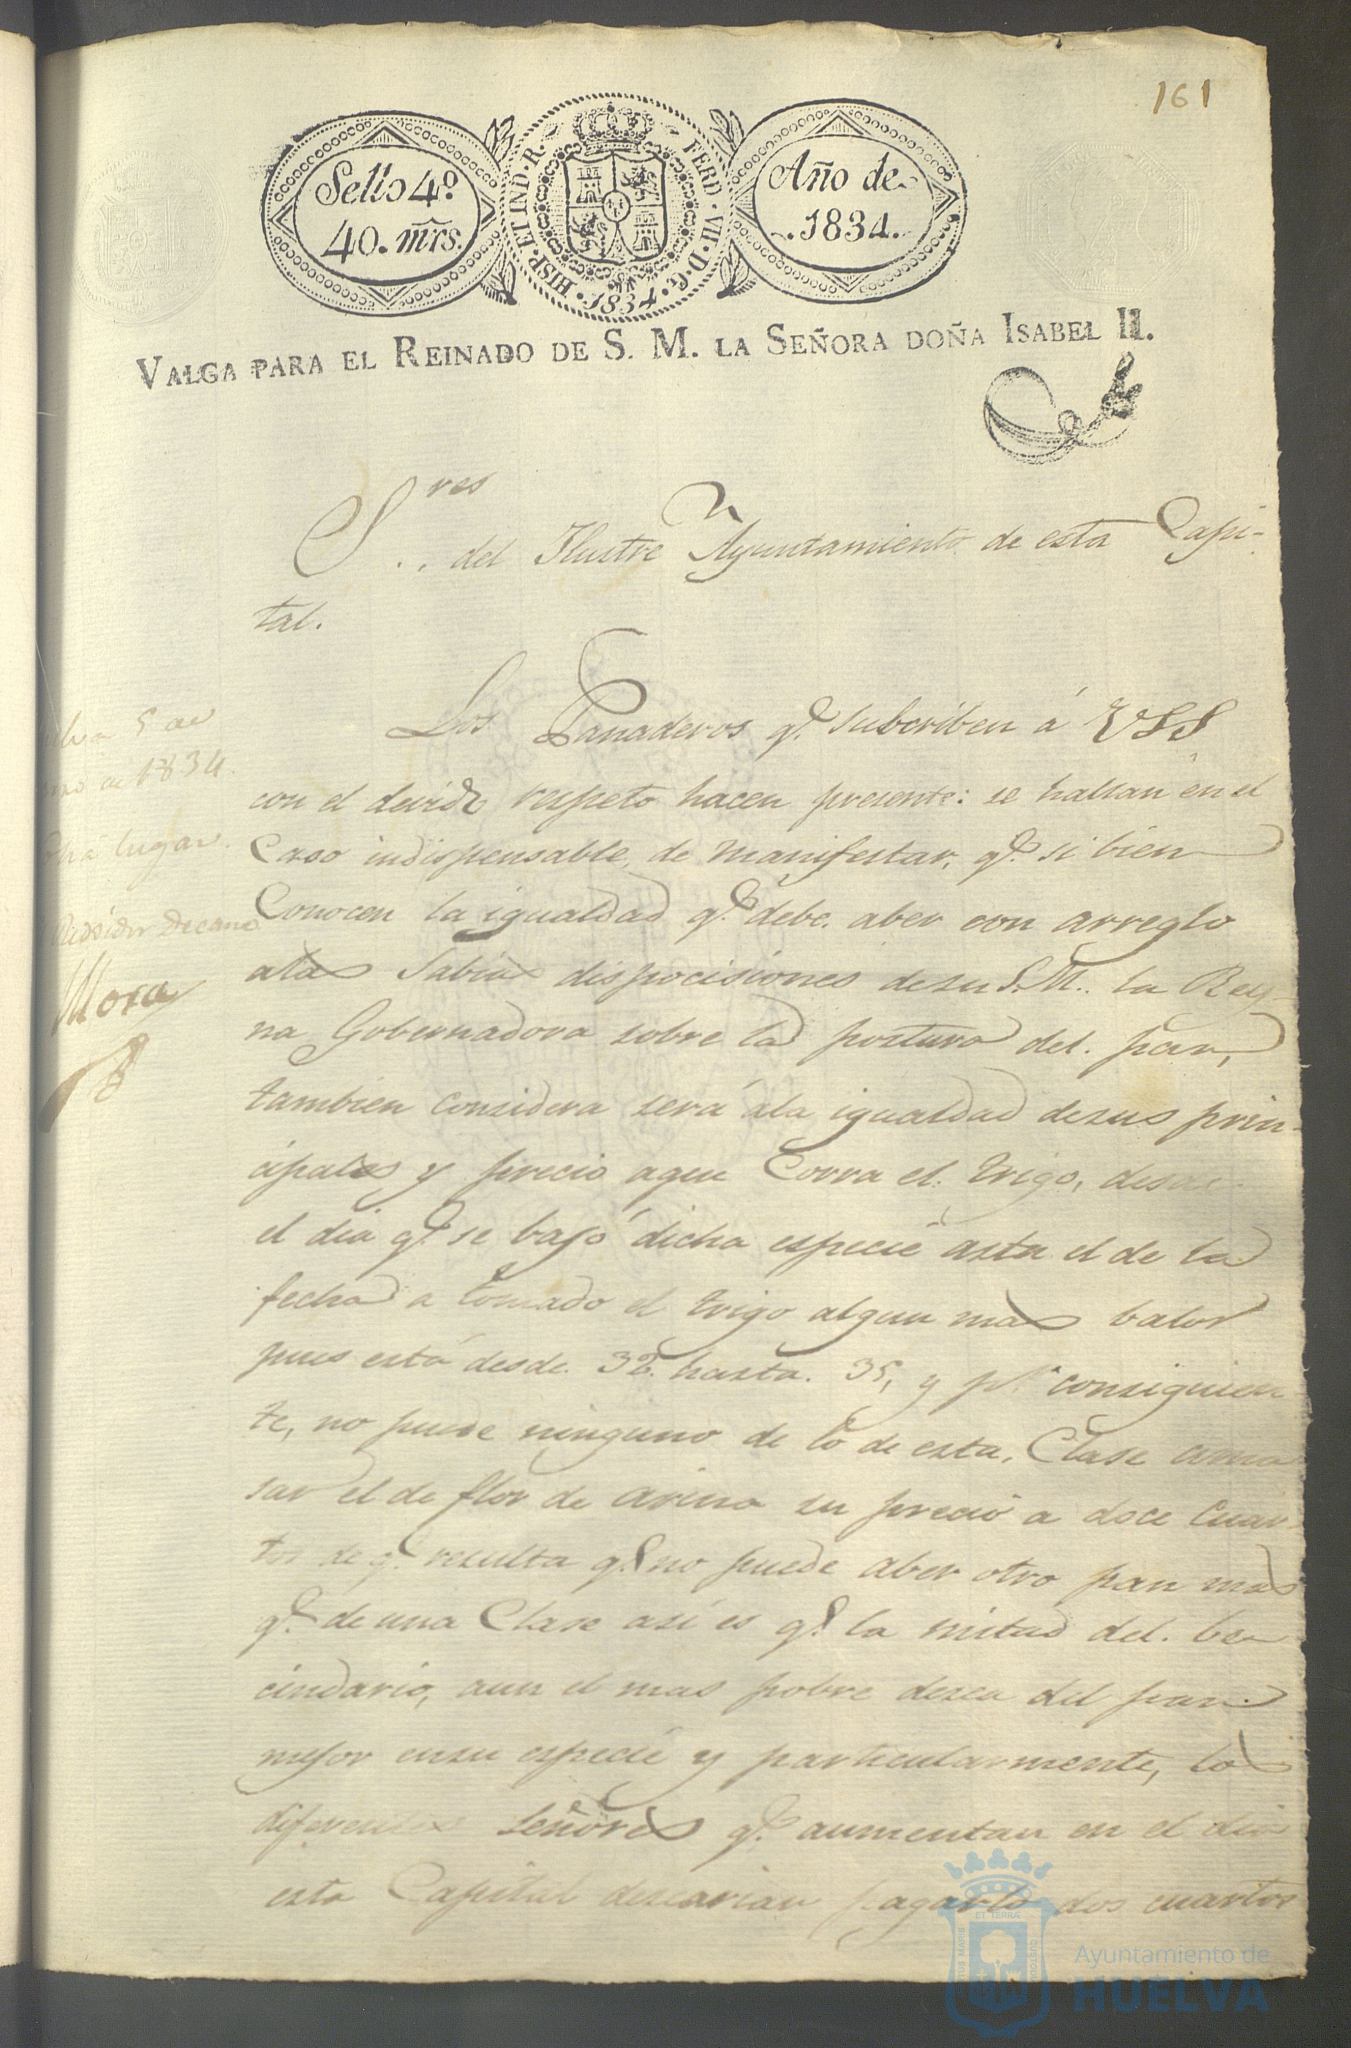 161
Sello 4º
40. mrs.
HISP. ET IND. R.
FERD. VII. D. G.
1834
Año de
1834.
VALGA PARA EL REINADO DE S. M. LA SEÑORA DOÑA ISABEL II.
Sres
del Ilustre Ayuntamiento de esta Capi-
tal.
Los Panaderos q.e subcriben á VSS
con el devido respeto hacen presente: se hallan en el
Caso indispensable, de manifestar, q.e si bien
Conocen la igualdad q.e debe aber con arreglo
alas Sabias dispocisiones de su S.M. la Rey-
na Gobernadora sobre la postura del pan,
tambien considera será ála igualdad de sus prin-
cipales y precio aque Corra el trigo, desde
el dia q.e se bajó dicha especie asta el de la
fecha a tomado el trigo algun mas balor
pues está desde 32 hasta 35, y p.r consiguien
te, no puede ninguno de lo de esta Clase ama
sar el de flor de arina su precio a doce Cuar-
tos de q.e resulta q.e no puede aber otro pan mas
q.e de una Clase así es q.e la mitad del be
cindario, aun el mas pobre desea del pan
mejor en su especie y particularmente, los
diferentes señores q.e aumentan en el dia
esta Capital desearian pagarlo dos cuartos
5 de
de 1834.
lugar.
Rexidor Decano
Mora
Ayuntamiento de
HUELVA